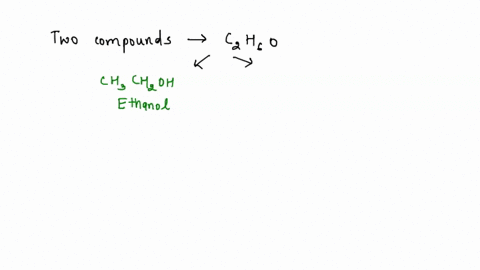 Two compounds → C₂H₆O
CH₃CH₂OH
Ethanol